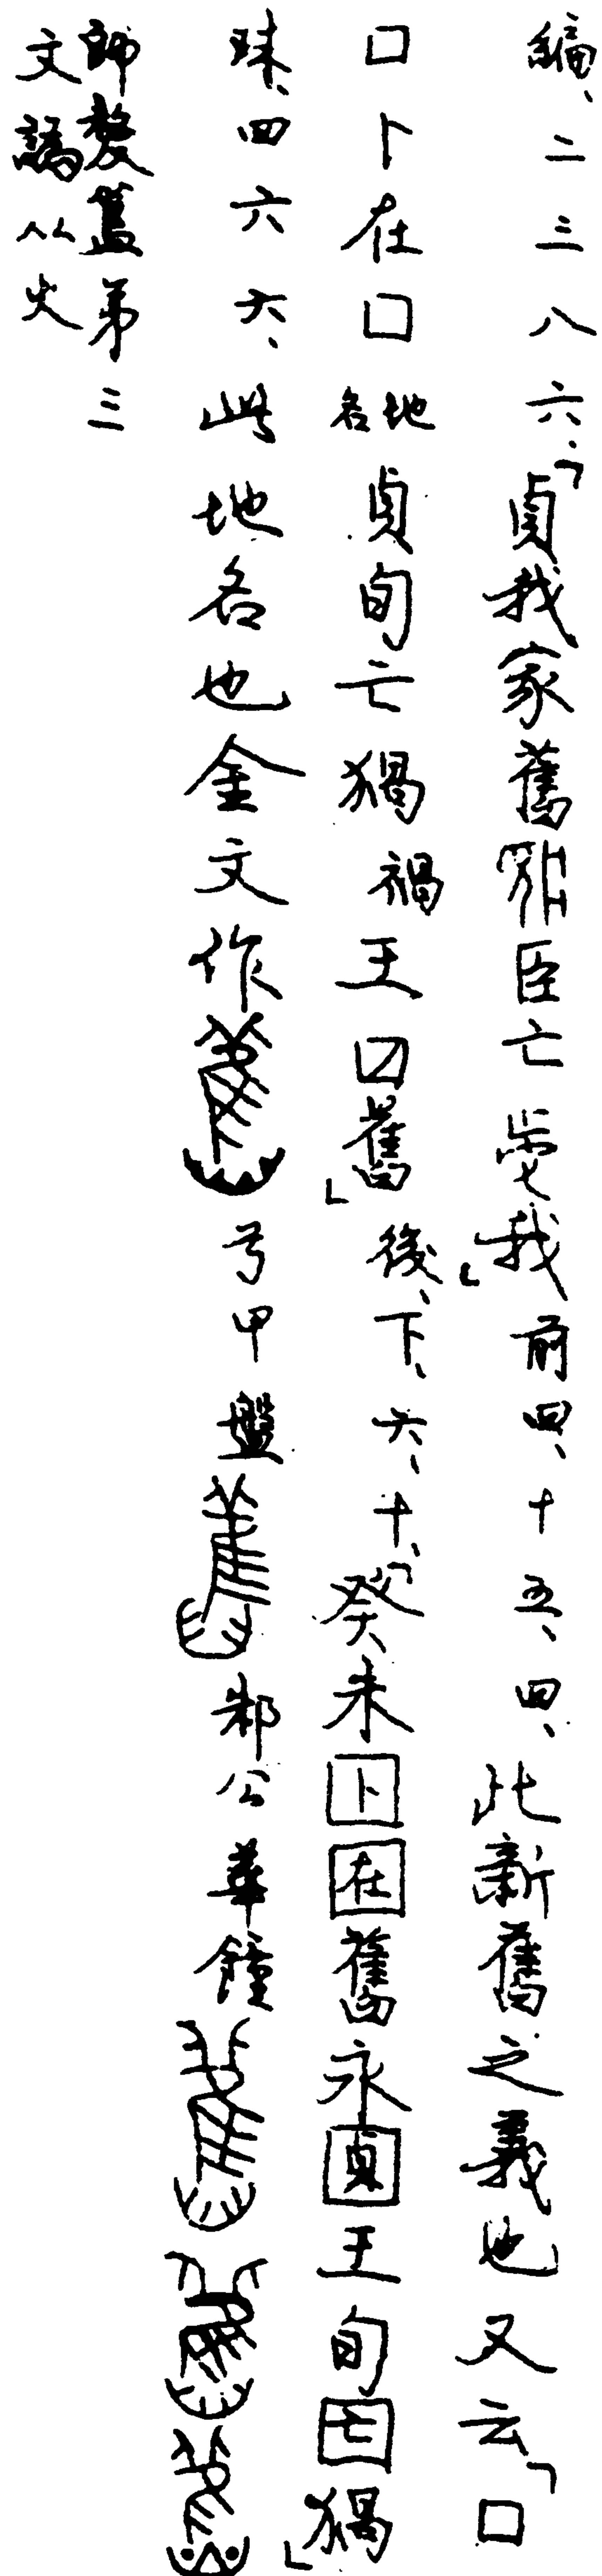 編、二三八六、「貞我家舊臣亡我」前四、十五、四、此新舊之義也又云「囗
囗卜在囗地名貞旬亡猧禍王囗舊」後、下、六、十、「癸未卜在舊永貞王旬亡猧」
珠、四六六、此地名也金文作兮甲盤邾公華鐘
師嫠簋弟三
文譌从火